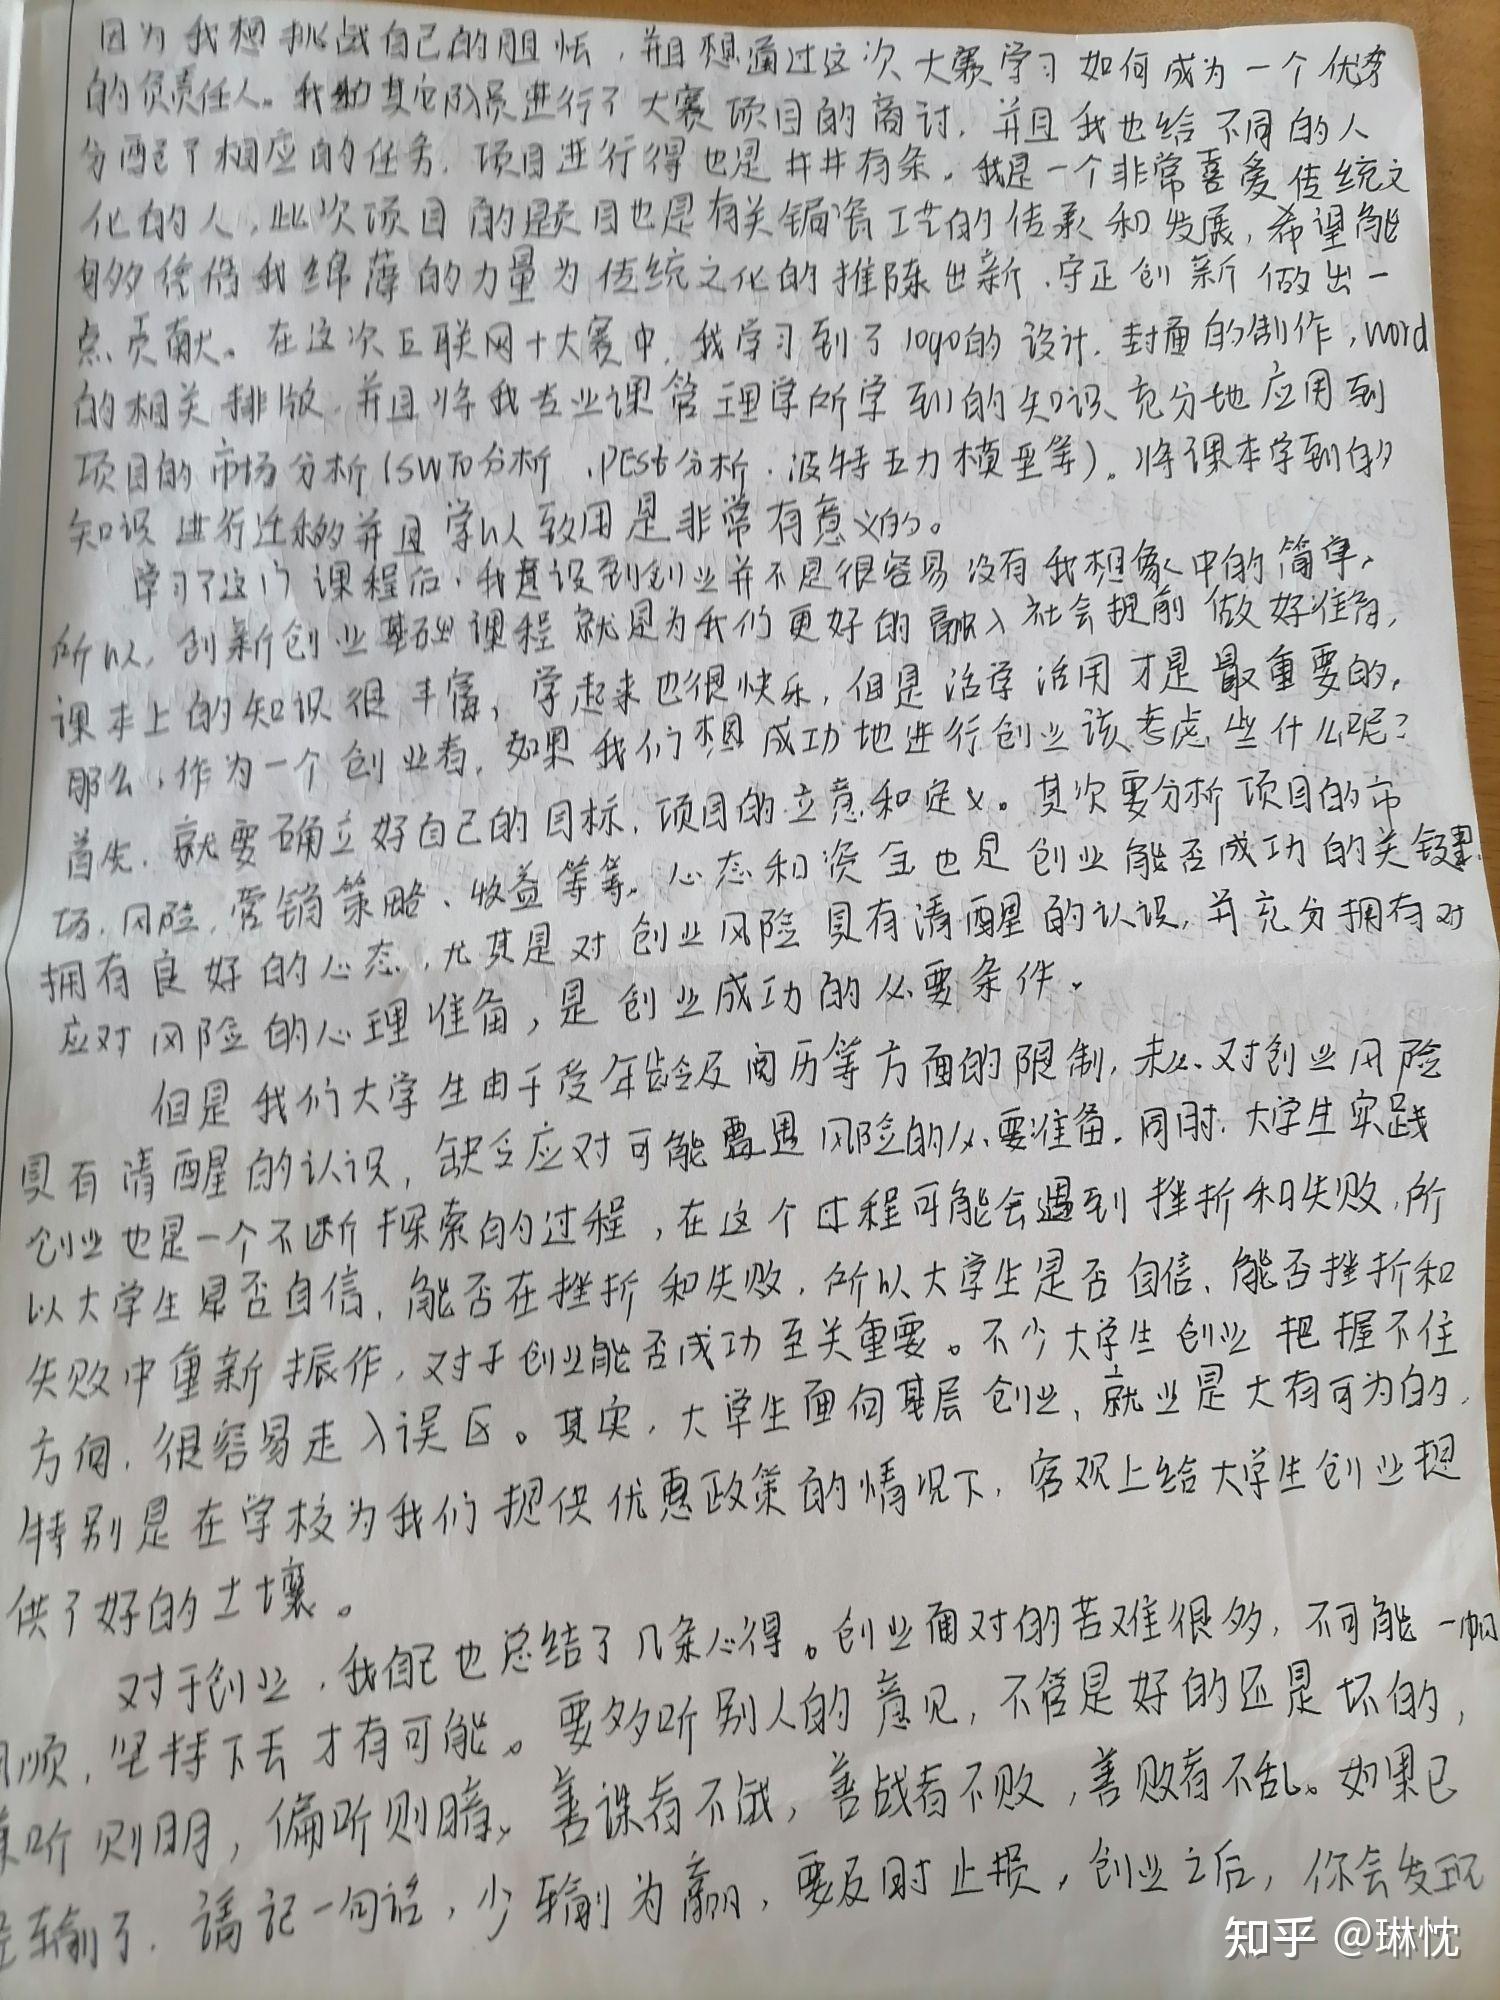 因为我想挑战自己的胆怯，并且想通过这次大赛学习如何成为一个优秀
的负责任人。我和其它队员进行了大赛项目的商讨，并且我也给不同的人
分配了相应的任务，项目进行得也是井井有条。我是一个非常喜爱传统文
化的人，此次项目的题目也是有关锔瓷工艺的传承和发展，希望能
够凭借我绵薄的力量为传统文化的推陈出新、守正创新做出一
点贡献。在这次互联网+大赛中，我学习到了logo的设计、封面的制作，word
的相关排版，并且将我专业课管理学所学到的知识充分地应用到
项目的市场分析(SWTO分析、PESt分析、波特五力模型等)。将课本学到的
知识进行迁移并且学以致用是非常有意义的。
学习了这门课程后，我意识到创业并不是很容易没有我想象中的简单，
所以，创新创业基础课程就是为我们更好的融入社会提前做好准备，
课本上的知识很丰富，学起来也很快乐，但是活学活用才是最重要的，
那么，作为一个创业者，如果我们想成功地进行创业该考虑些什么呢？
首先，就要确立好自己的目标，项目的立意和定义。其次要分析项目的市
场、风险、营销策略、收益等等。心态和资金也是创业能否成功的关键，
拥有良好的心态，尤其是对创业风险具有清醒的认识，并充分拥有对
应对风险的心理准备，是创业成功的必要条件。
但是我们大学生由于受年龄及阅历等方面的限制，未必对创业风险
具有清醒的认识，缺乏应对可能遭遇风险的必要准备。同时，大学生实践
创业也是一个不断探索的过程，在这个过程可能会遇到挫折和失败，所
以大学生是否自信，能否在挫折和失败，所以大学生是否自信，能否挫折和
失败中重新振作，对于创业能否成功至关重要。不少大学生创业把握不住
方向，很容易走入误区。其实，大学生面向基层创业、就业是大有可为的，
特别是在学校为我们提供优惠政策的情况下，客观上给大学生创业提
供了好的土壤。
对于创业，我自己也总结了几条心得。创业面对的苦难很多，不可能一帆
风顺，坚持下去才有可能。要多听别人的意见，不管是好的还是坏的，
兼听则明，偏听则暗，善谋者不战，善战者不败，善败者不乱。如果已
经输了，请记一句话，少输则为赢，要及时止损，创业之后，你会发现
知乎 @琳忱